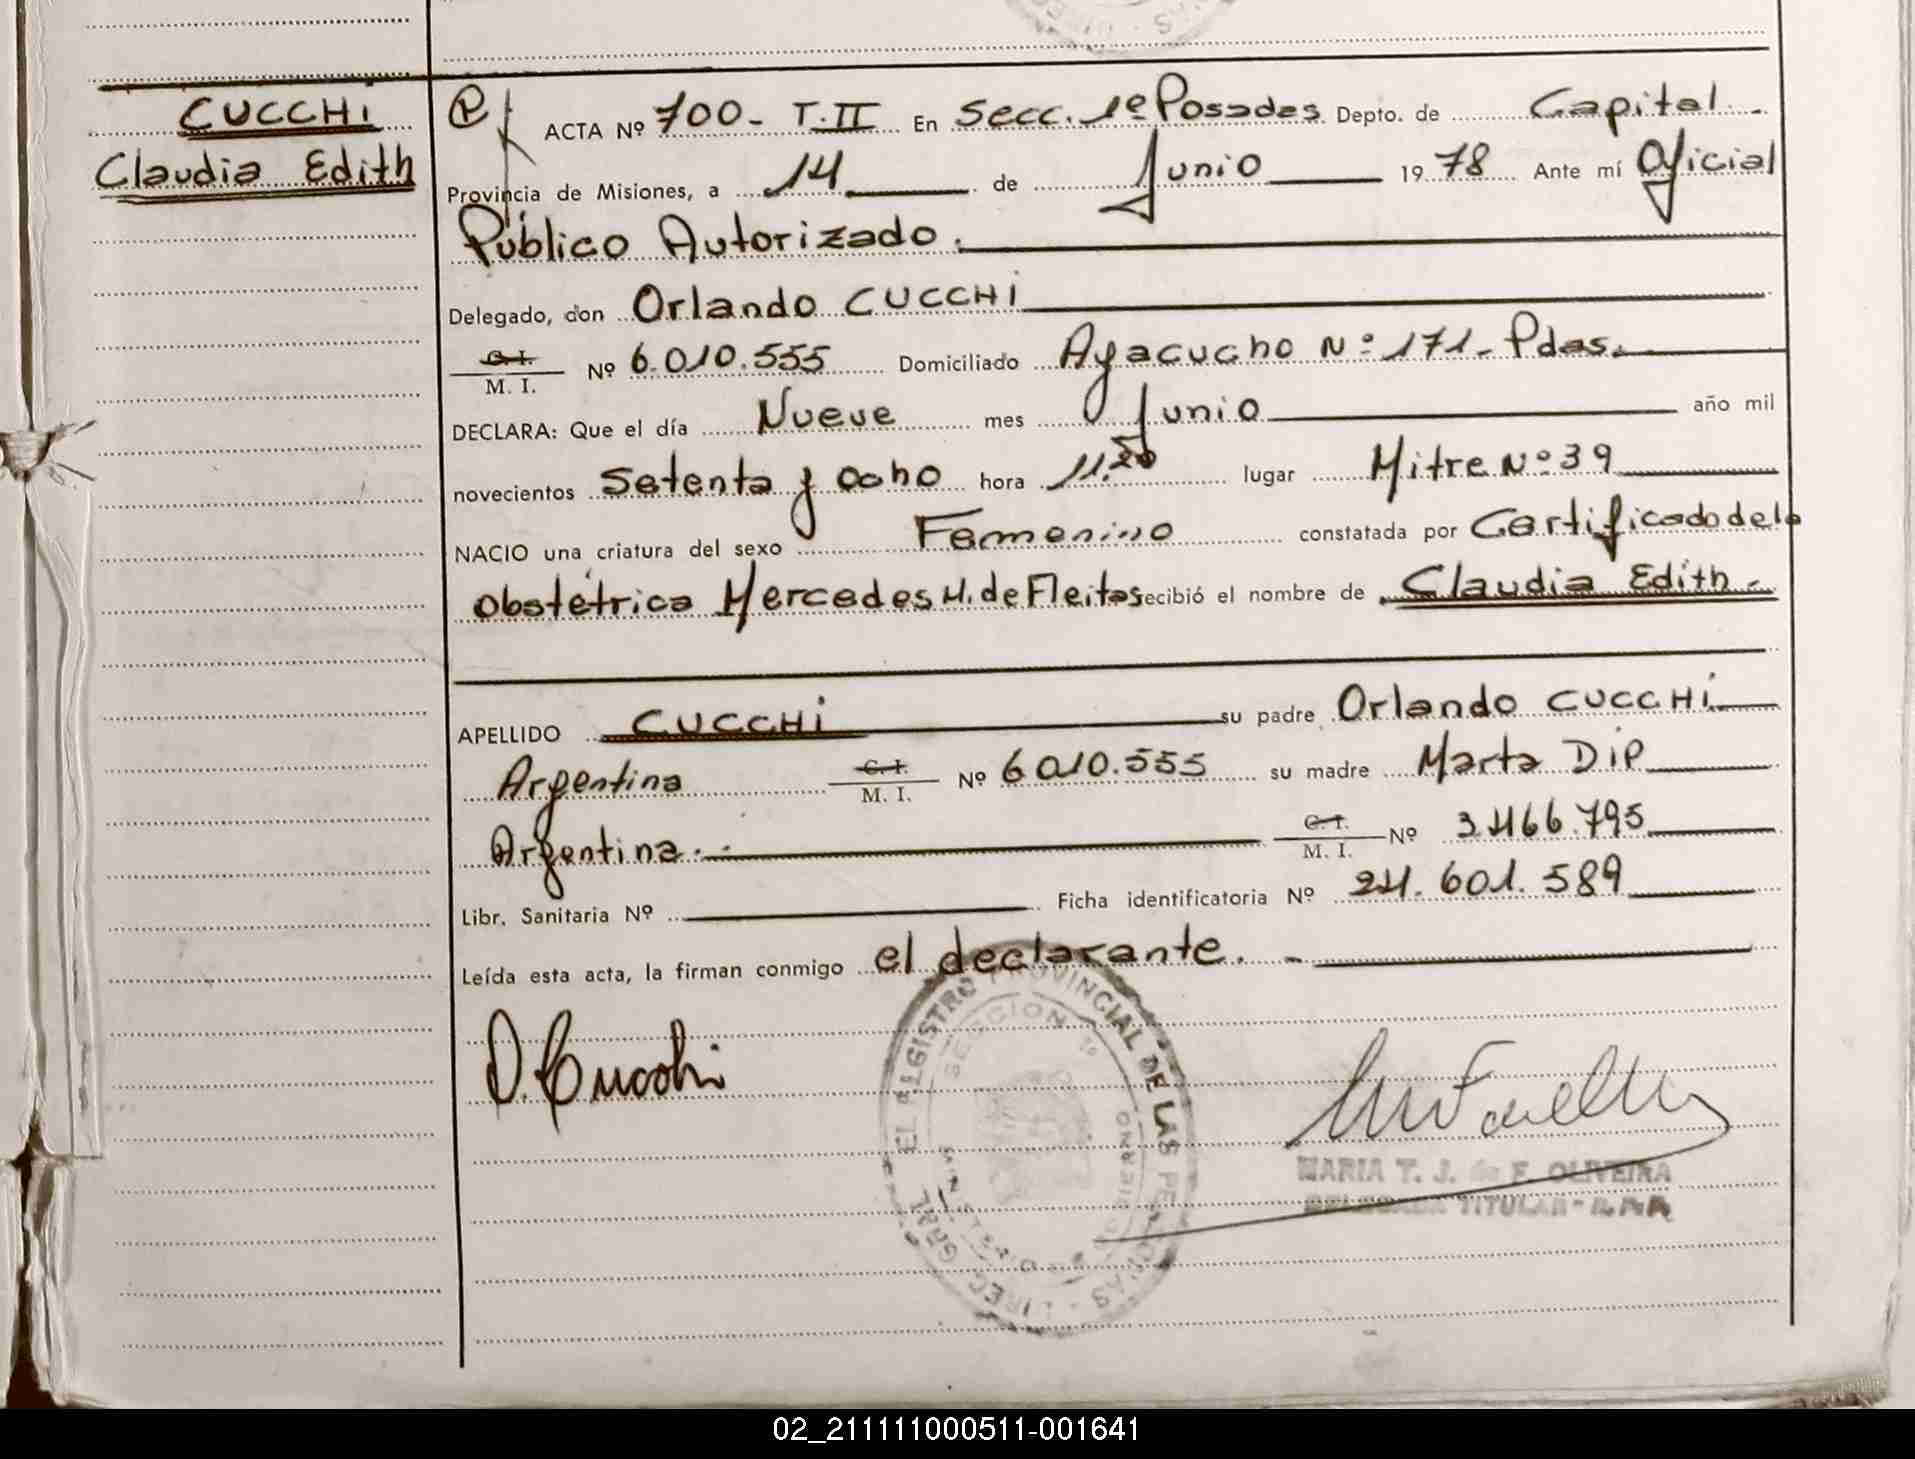 CUCCHI
Claudia Edith
ACTA Nº 700- T.II En Secc. 1º Posadas Depto. de Capital.-
Provincia de Misiones, a 14 de Junio 1978 Ante mí Oficial
Público Autorizado.
Delegado, don Orlando CUCCHI
C. I.
M. I. Nº 6.010.555 Domiciliado Ayacucho Nº 171- Pdas.
DECLARA: Que el día Nueve mes Junio año mil
novecientos Setenta y ocho hora 11.50 lugar Mitre Nº 39
NACIO una criatura del sexo Femenino constatada por Certificado de la
Obstétrica Mercedes M. de Fleitas ecibió el nombre de Claudia Edith.-
APELLIDO CUCCHI su padre Orlando CUCCHI
Argentina C. I. M. I. Nº 6010.555 su madre Marta DIP
Argentina.- C. I. M. I. Nº 3.466.795
Libr. Sanitaria Nº Ficha identificatoria Nº 24.601.589
Leída esta acta, la firman conmigo el declarante. -
O. Cucchi
MARIA T. J. de F. OLIVEIRA
DELEGADA TITULAR - R.P.P.
02_211111000511-001641